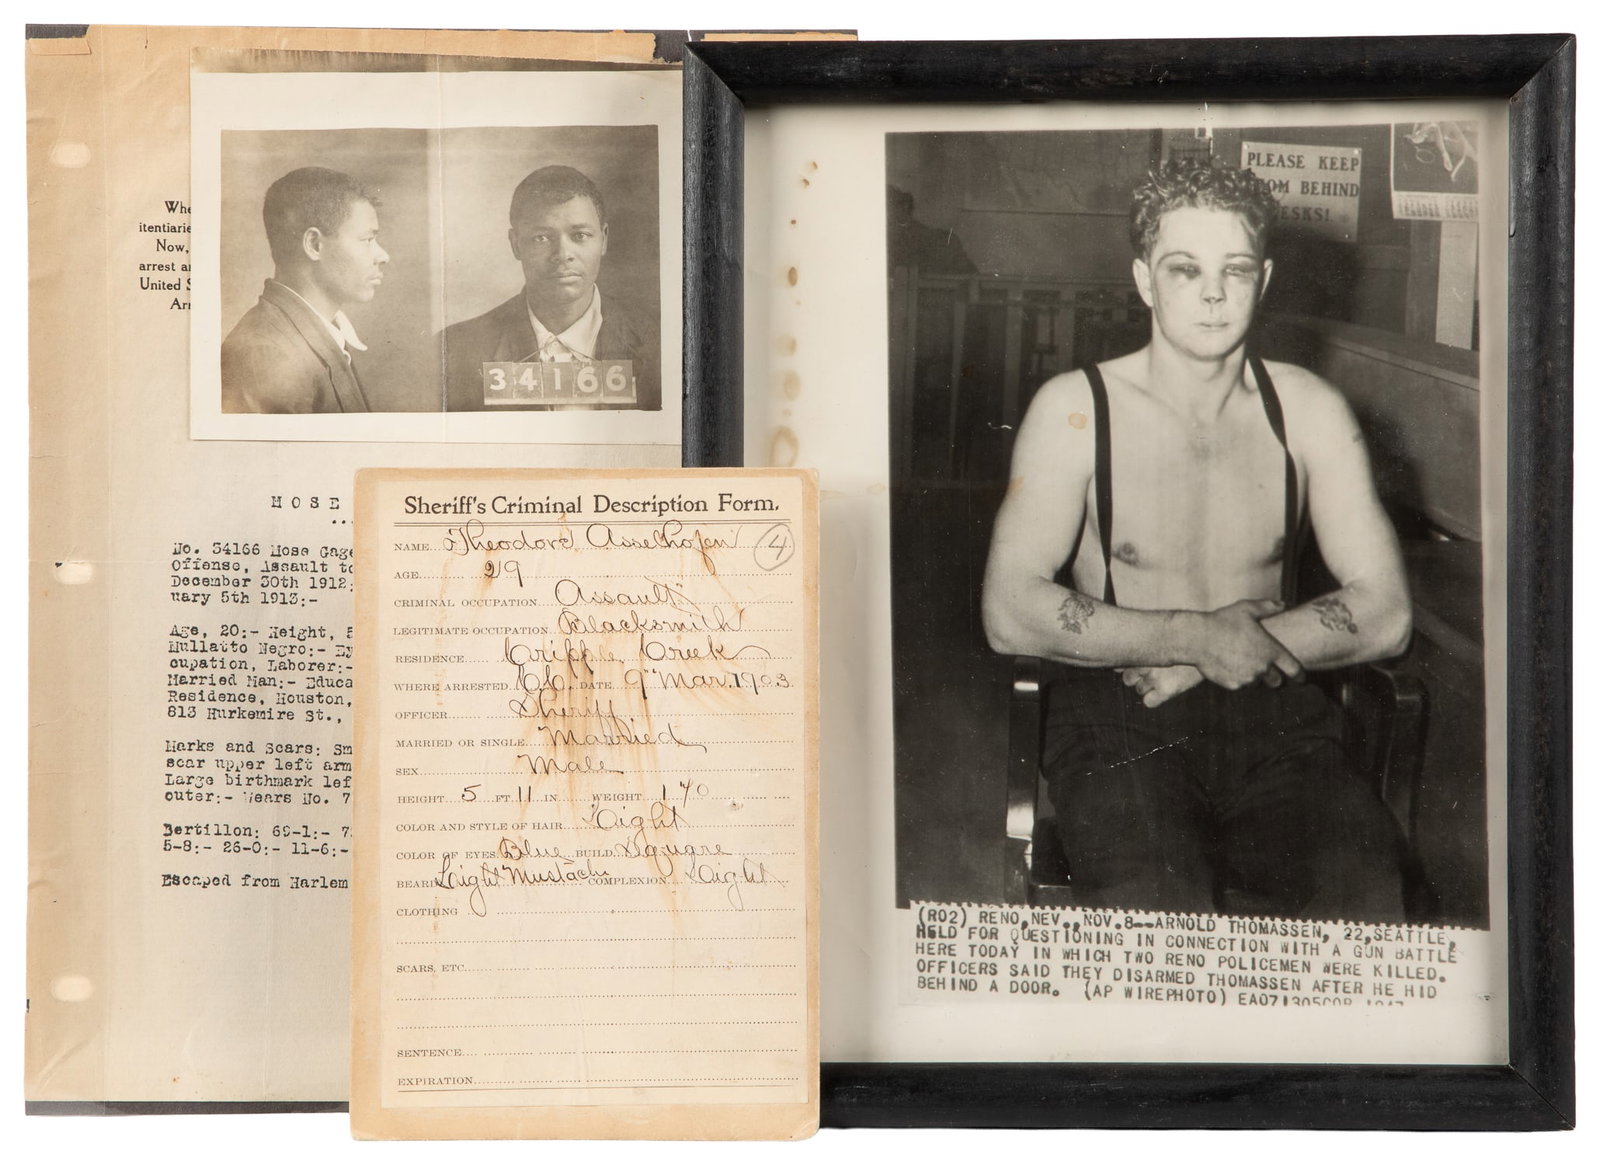 Whe
itentiarie
Now,
arrest a
United S
Arr
34166
MOSE
...
No. 34166 Mose Gage
Offense, Assault to
December 30th 1912:
uary 5th 1913:-
Age, 20:- Height, 5
Mullatto Negro:- Ey
cupation, Laborer:-
Married Man:- Educa
Residence, Houston,
813 Hurkemire St.,
Marks and Scars: Sm
scar upper left arm
Large birthmark lef
outer:- Wears No. 7
Bertillon: 69-1:- 7
5-8:- 26-0:- 11-6:-
Escaped from Harlem
Sheriff's Criminal Description Form.
NAME Theodore Asselhofen 4
AGE 29
CRIMINAL OCCUPATION Assault
LEGITIMATE OCCUPATION Blacksmith
RESIDENCE Cripple Creek
WHERE ARRESTED C.C. DATE 9" Mar. 1903
OFFICER Sheriff
MARRIED OR SINGLE Married
SEX Male
HEIGHT 5 FT 11 IN WEIGHT 170
COLOR AND STYLE OF HAIR Light
COLOR OF EYES Blue BUILD Square
BEARD Light Mustache COMPLEXION Light
CLOTHING
SCARS, ETC.
SENTENCE
EXPIRATION
PLEASE KEEP
OM BEHIND
ESKS!
(RO2) RENO, NEV., NOV. 8--ARNOLD THOMASSEN, 22, SEATTLE,
HELD FOR QUESTIONING IN CONNECTION WITH A GUN BATTLE
HERE TODAY IN WHICH TWO RENO POLICEMEN WERE KILLED.
OFFICERS SAID THEY DISARMED THOMASSEN AFTER HE HID
BEHIND A DOOR. (AP WIREPHOTO) EA071305COR 1947